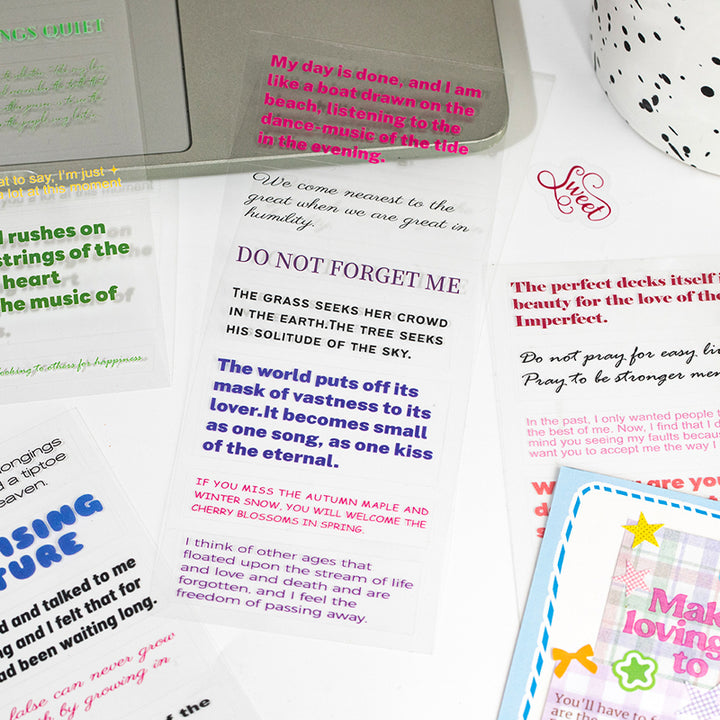 NGS QUIET
at to say, I'm just
lot at this moment
rushes on
strings of the
heart
he music of
s.
looking to others for happiness.
My day is done, and I am
like a boat drawn on the
beach, listening to the
dance-music of the tide
in the evening.
We come nearest to the
great when we are great in
humility.
DO NOT FORGET ME
THE GRASS SEEKS HER CROWD
IN THE EARTH.THE TREE SEEKS
HIS SOLITUDE OF THE SKY.
The world puts off its
mask of vastness to its
lover.It becomes small
as one song, as one kiss
of the eternal.
IF YOU MISS THE AUTUMN MAPLE AND
WINTER SNOW, YOU WILL WELCOME THE
CHERRY BLOSSOMS IN SPRING.
I think of other ages that
floated upon the stream of life
and love and death and are
forgotten, and I feel the
freedom of passing away.
Sweet
The perfect decks itself i
beauty for the love of the
Imperfect.
Do not pray for easy li
Pray to be stronger men
In the past, I only wanted people t
the best of me. Now, I find that I d
mind you seeing my faults becaus
want you to accept me the way I
are you
Mak
loving
to
You'll have to
are the
longings
d a tiptoe
eaven.
ISING
TURE
d and talked to me
ng and I felt that for
ad been waiting long.
false can never grow
th by growing in
of the